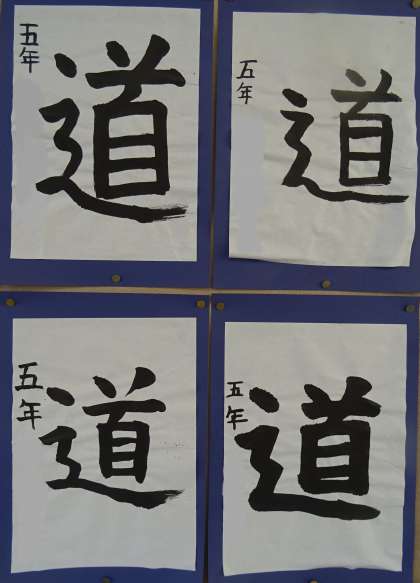 五年
道
五年
道
五年
道
五年
道